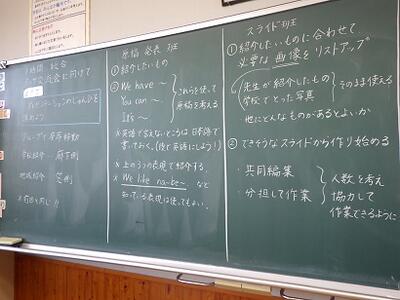 原稿 発表 班
①紹介したいもの
② We have ～
You can ～
It's ～
これらを使って
原稿を考える
※英語で言えないところは日本語で
書いておく。(後で英語にしよう!)
※上の3つの表現で紹介する。
※ We like na-be~. など
知っている表現は使ってもよい。
スライド班
①紹介したいものに合わせて
必要な画像をリストアップ
先生が紹介したもの
学校でとった写真
そのまま使える
他にどんなものがあるとよいか
②できそうなスライドから作り始める
・共同編集
・分担して作業
人数を考え
協力して
作業できるように
1時間 総合
交流会に向けて
プレゼンテーションのしゅんびを
進めよう
グループで座席移動
学校紹介…廊下側
地域紹介…窓側
※前回と同じ!!